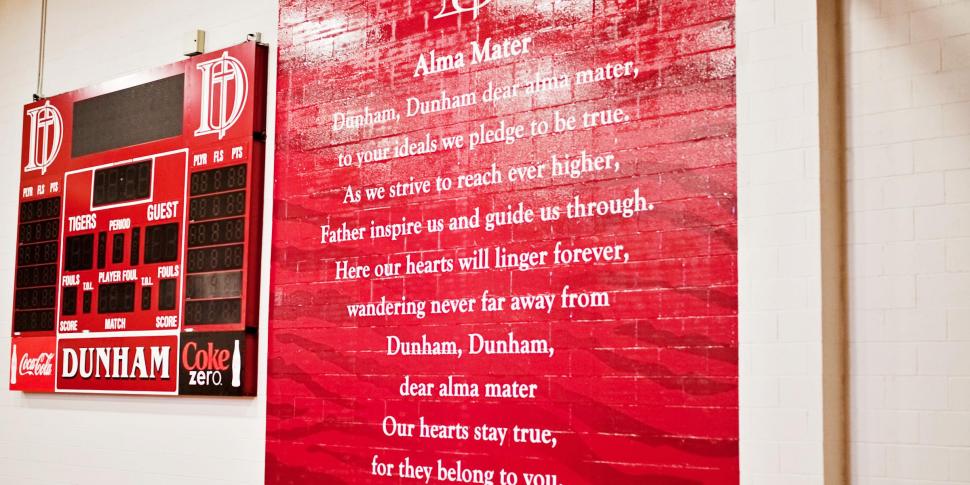 D
D
PLYR FLS PTS
PLYR FLS PTS
TIGERS PERIOD GUEST
FOULS T.O.L. PLAYER FOUL T.O.L. FOULS
SCORE MATCH SCORE
Coca-Cola
DUNHAM
Coke
zero
Alma Mater
Dunham, Dunham dear alma mater,
to your ideals we pledge to be true.
As we strive to reach ever higher,
Father inspire us and guide us through.
Here our hearts will linger forever,
wandering never far away from
Dunham, Dunham,
dear alma mater
Our hearts stay true,
for they belong to you.